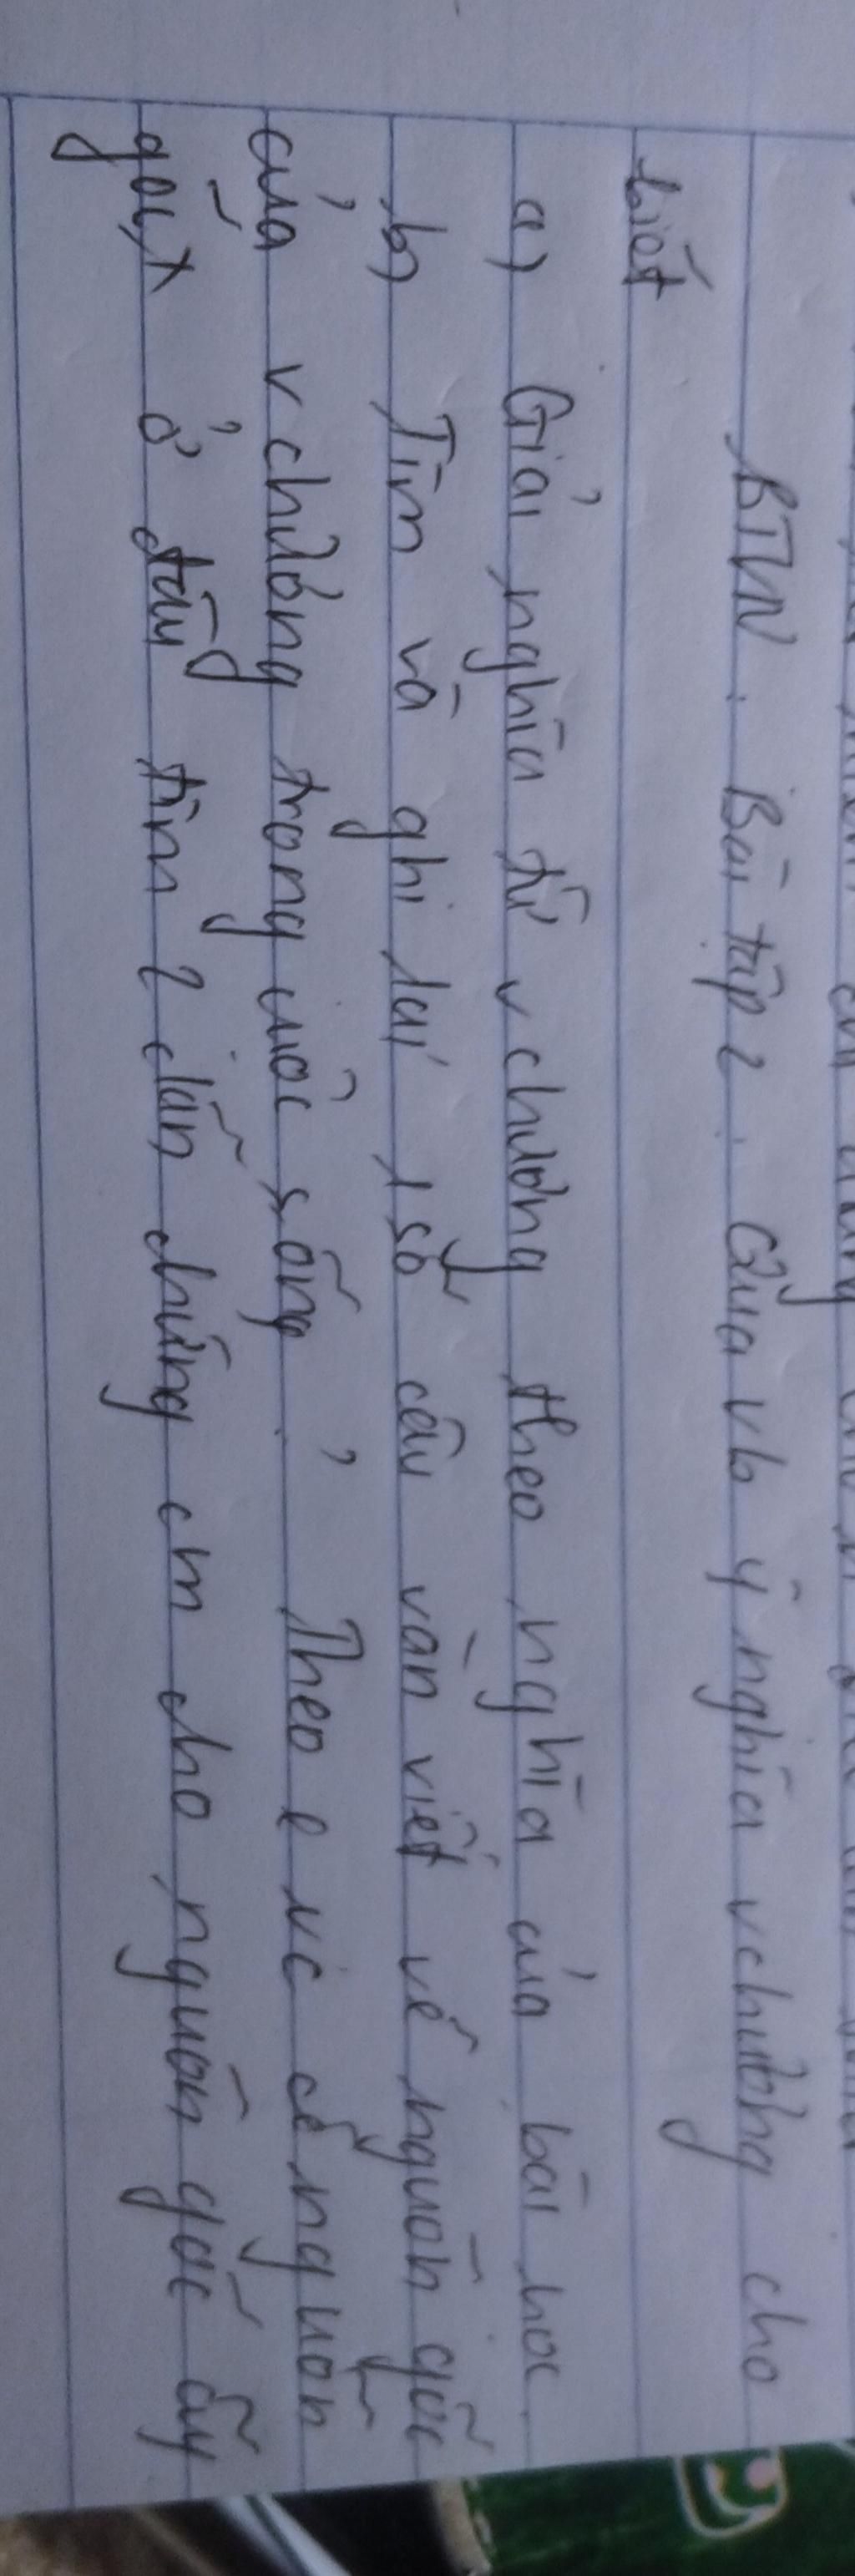 BTVN : Bài tập 2 : Qua vb ý nghĩa vchương cho
biết
a) Giải nghĩa từ vchương theo nghĩa của bài học.
b) Tìm và ghi lại 1 số câu văn viết về nguồn gốc
của vchương trong cuộc sống. Theo e vc có nguồn
gốc, x ở đây tìm 2 dẫn chứng cm cho nguồn gốc ấy